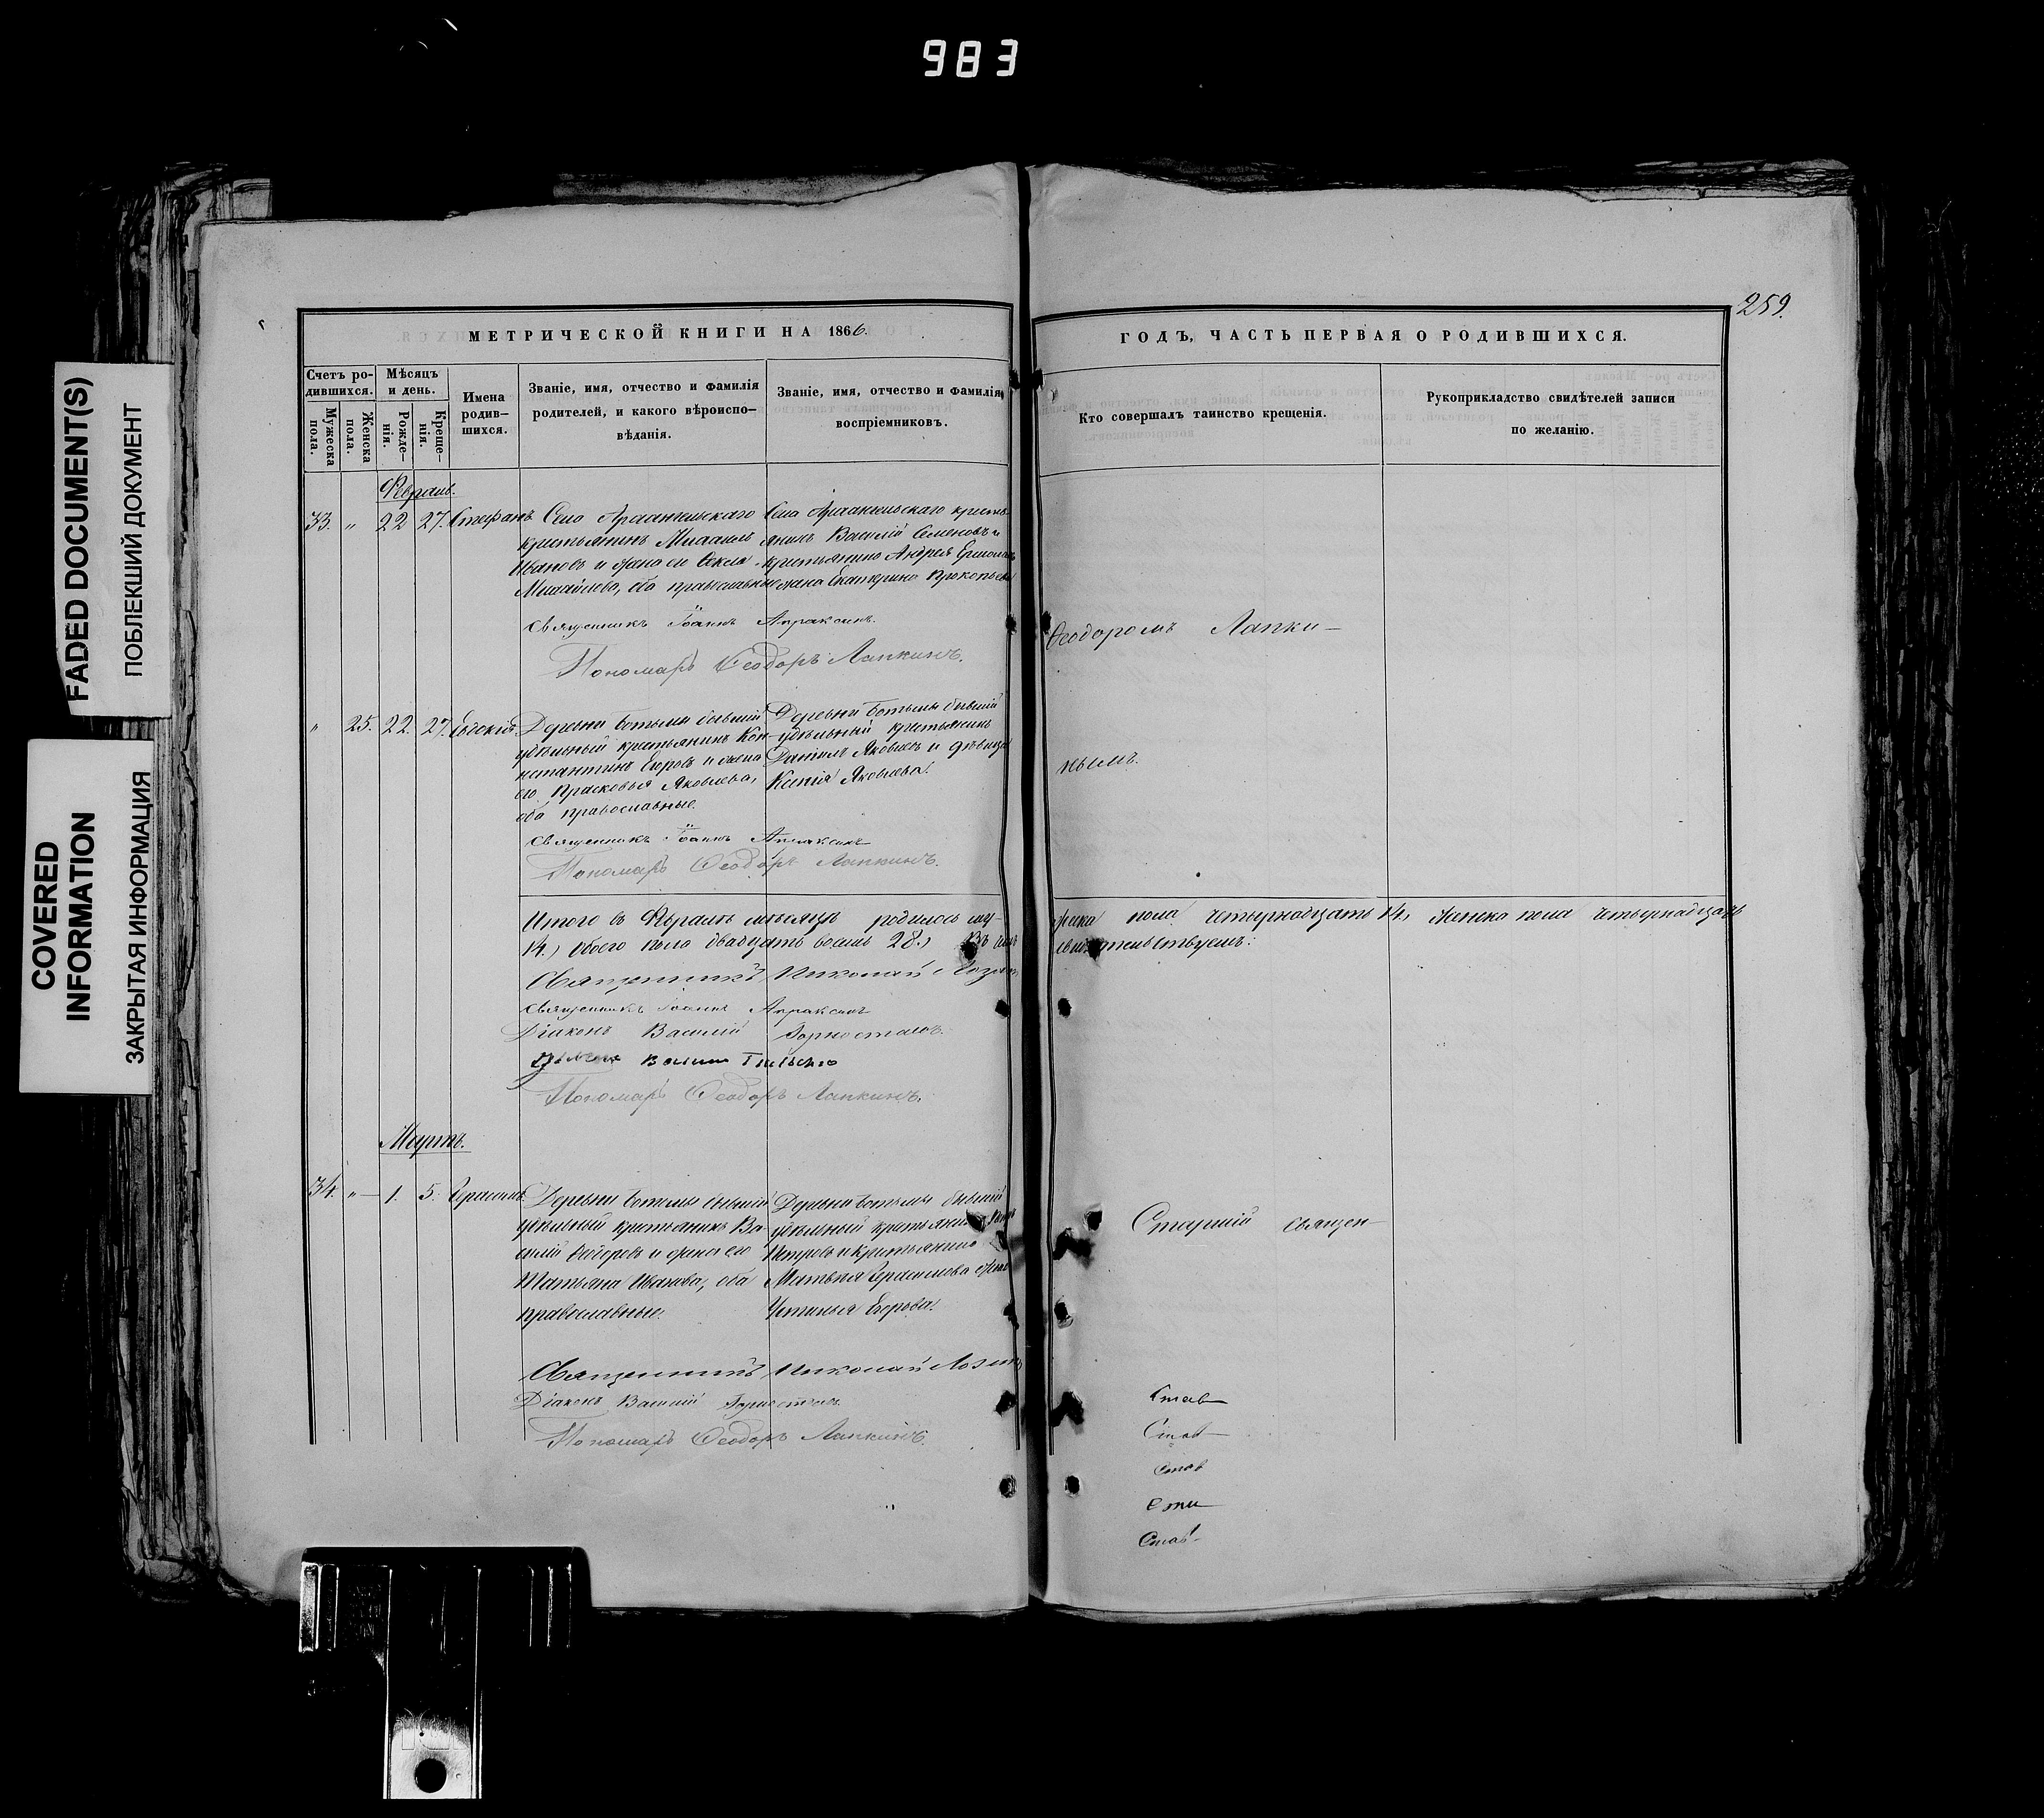 983
FADED DOCUMENT(S)
ПОБЛЕКШИЙ ДОКУМЕНТ
COVERED
INFORMATION
ЗАКРЫТАЯ ИНФОРМАЦИЯ
259.
МЕТРИЧЕСКОЙ КНИГИ НА 1866.
ГОДЪ, ЧАСТЬ ПЕРВАЯ О РОДИВШИХСЯ.
Счетъ ро-
дившихся.
Мужеска
пола.
Женска
пола.
Мѣсяцъ
и день.
Рожде-
нія.
Креще-
нія.
Имена
родив-
шихся.
Званіе, имя, отчество и фамилія
родителей, и какого вѣроиспо-
вѣданія.
Званіе, имя, отчество и фамилія
воспріемниковъ.
Кто совершалъ таинство крещенія.
Рукоприкладство свидѣтелей записи
по желанію.
33. " 22 27. Стефанъ.
Села Архангельскаго
крестьянинъ Михаилъ
Ивановъ и жена его Ѳекла
Михайлова, оба православные
Села Архангельскаго кресть-
янинъ Василій Семеновъ и
крестьянина Андрея
жена Екатерина Прокопьева
Священникъ Іоаннъ Апраксинъ.
Пономарь Ѳеодоръ Лапкинъ.
Ѳеодоромъ Лапки-
" 25. 22. 27. Евдокія.
Деревни бывшій
удѣльный крестьянинъ Кон-
стантинъ Егоровъ и жена
его Прасковья Яковлева,
оба православные.
Деревни бывшій
удѣльный крестьянинъ
Даніилъ Яковлевъ и дѣвица
Ксенія Яковлева.
нымъ.
Священникъ Іоаннъ Апраксинъ
Пономарь Ѳеодоръ Лапкинъ.
Итого въ Февралѣ мѣсяцѣ родилось му-
жеска пола четырнадцать 14, женска пола четырнадцать
14., обоего пола двадцать восемь 28., Въ чемъ
свидѣтельствуемъ:
Священникъ Николай
Священникъ Іоаннъ Апраксинъ
Діаконъ Василій
Пономарь Ѳеодоръ Лапкинъ.
Мартъ.
34. " 1. 5. Герасимъ.
Деревни бывшій
удѣльный крестьянинъ Ва-
силій и жена его
Татьяна Иванова, оба
православные.
Деревни бывшій
удѣльный крестьянинъ
Петровъ и крестьянина
Матвѣя Герасимова жена
Устинья Егорова.
Старшій священ-
Священникъ Николай
Діаконъ Василій
Пономарь Ѳеодоръ Лапкинъ.
Став-
Став-
Став
Став-